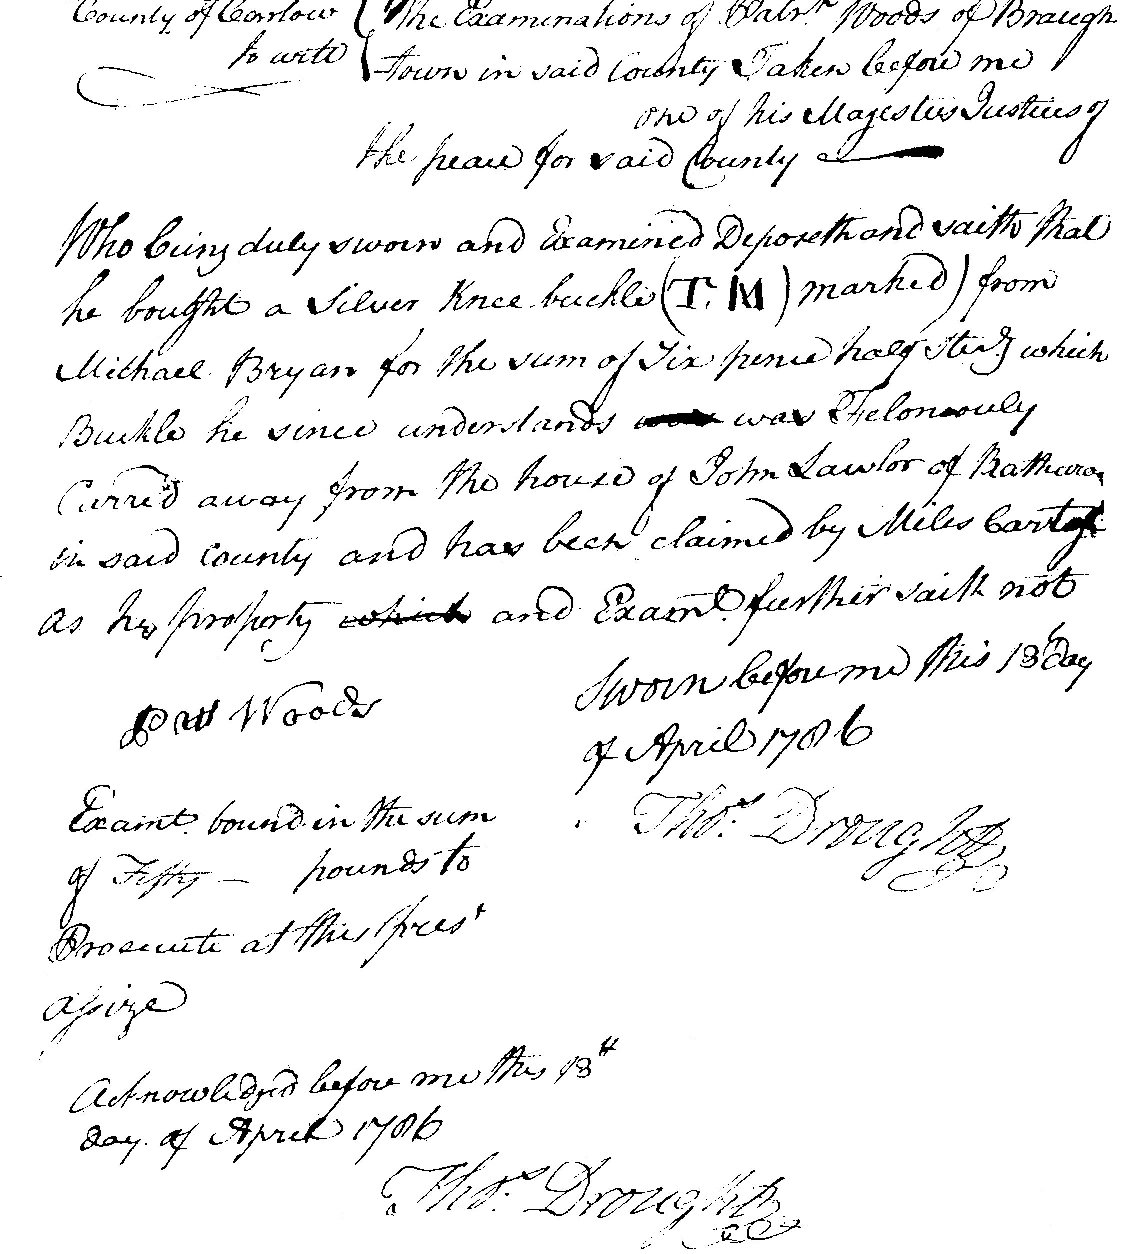 County of Carlow
to wit
The Examinations of Patrk Woods of Braugh
town in said County Taken before me
one of his Majesties Justices of
the peace for said County
Who being duly sworn and Examined Deposeth and saith that
he bought a Silver Knee buckle (T. M) marked) from
Michael Bryan for the sum of Six pence half Sterg which
Buckle he since understands was Feloneously
Carre'd away from the house of John Lawlor of
in said County and has been claimed by Miles
as his property which and Examt. further saith not
Sworn before me this 18 day
of April 1786
Patt Woods
Thos. Drought
Examt. bound in the sum
of Fifty — pounds to
Prosecute at this prest
assize
Acknowledged before me this 18th
day of April 1786
Thos. Drought